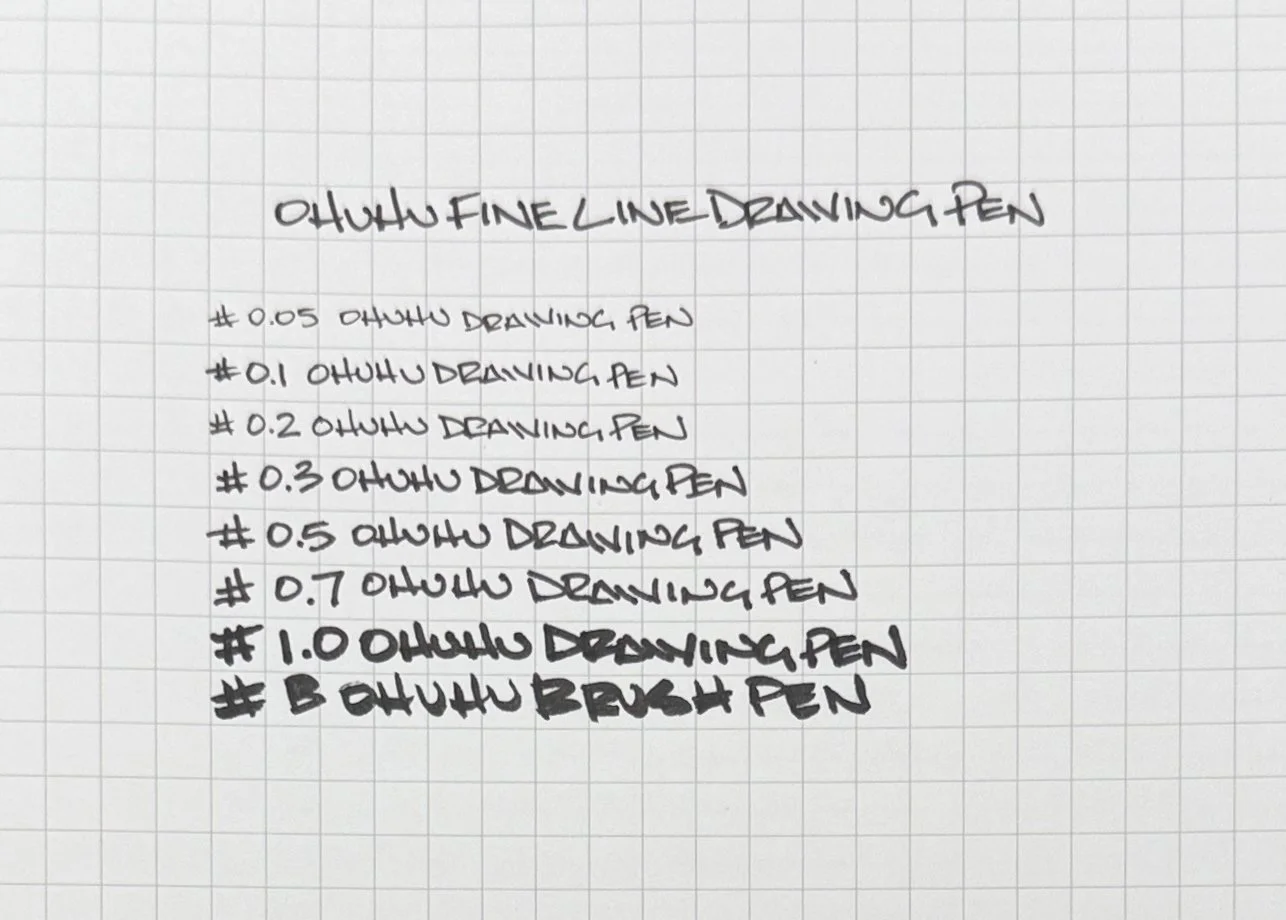 OHUHU FINE LINE DRAWING PEN
# 0.05 OHUHU DRAWING PEN
# 0.1 OHUHU DRAWING PEN
# 0.2 OHUHU DRAWING PEN
# 0.3 OHUHU DRAWING PEN
# 0.5 OHUHU DRAWING PEN
# 0.7 OHUHU DRAWING PEN
# 1.0 OHUHU DRAWING PEN
# B OHUHU BRUSH PEN